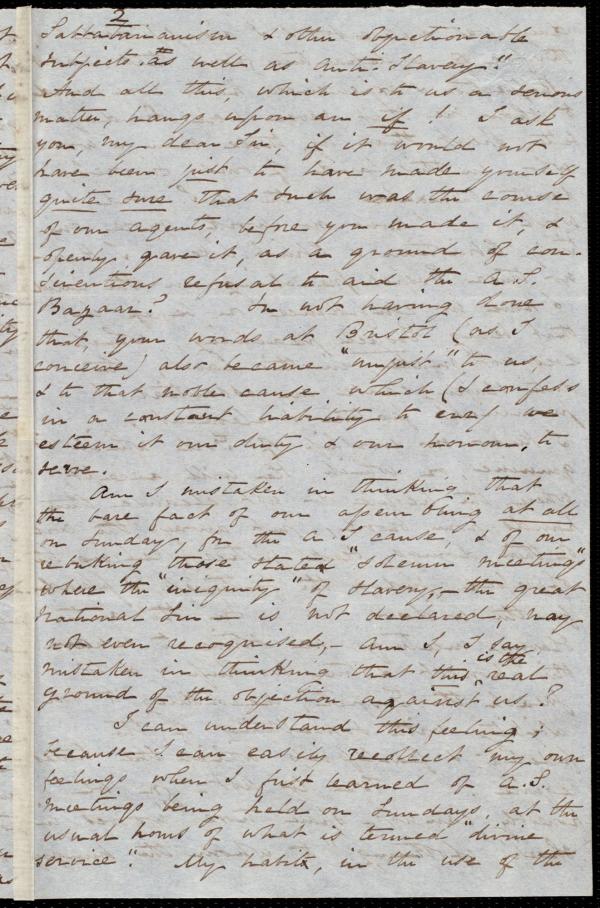 2
Sabbatarianism & other objectionable
subjects. as well as Anti-Slavery."
And all this, which is to us a serious
matter, hangs upon an if! I ask
you, my dear Sir, if it would not
have been just to have made yourself
quite sure that such was the course
of our agents, before you made it, &
openly gave it, as a ground of con-
scientious refusal to aid the A.S.
Bazaar? In not having done
that your words at Bristol (as I
conceive) also became "unjust" to us,
& to that noble cause which (I confess
in a constant liability to err) we
esteem it our duty & our honour, to
serve.
Am I mistaken in thinking that
the bare fact of our assembling at all
on Sunday, for the A.S. cause, & of our
rebuking those stated "solemn meetings"
where the "iniquity" of slavery,—the great
national sin— is not declared, nay
not even recognised,— am I, I say,
mistaken in thinking that this is the real
ground of the objection against us?
I can understand this feeling;
because I can easily recollect my own
feelings when I first learned of A.S.
meetings being held on Sundays, at the
usual hours of what is termed "divine
service". My habits, in the use of the